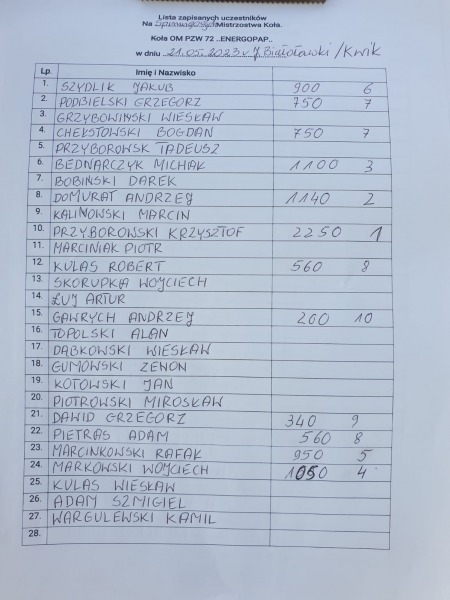 Lista zapisanych uczestników
Na Spinningowych Mistrzostwa Koła.
Koła OM PZW 72 ..ENERGOPAP..
w dniu 21.05.2023 v J. Białoławki /Kwik
Lp. Imię i Nazwisko
1. SZYDLIK JAKUB 900 6
2. PODBIELSKI GRZEGORZ 750 7
3. GRZYBOWIŃSKI WIESŁAW
4. CHEŁSTOWSKI BOGDAN 750 7
5. PRZYBOROWSK TADEUSZ
6. BEDNARCZYK MICHAŁ 1100 3
7. BOBIŃSKI DAREK
8. DOMURAT ANDRZEJ 1140 2
9. KALINOWSKI MARCIN
10. PRZYBOROWSKI KRZYSZTOF 2250 1
11. MARCINIAK PIOTR
12. KULAS ROBERT 560 8
13. SKORUPKA WOJCIECH
14. ŁUJ ARTUR
15. GAWRYCH ANDRZEJ 200 10
16. TOPOLSKI ALAN
17. DĄBKOWSKI WIESŁAW
18. GUMOWSKI ZENON
19. KOTOWSKI JAN
20. PIOTROWSKI MIROSŁAW
21. DAWID GRZEGORZ 340 9
22. PIETRAS ADAM 560 8
23. MARCINKOWSKI RAFAŁ 950 5
24. MARKOWSKI WOJCIECH 1050 4
25. KULAS WIESŁAW
26. ADAM SZMIGIEL
27. WARGULEWSKI KAMIL
28.